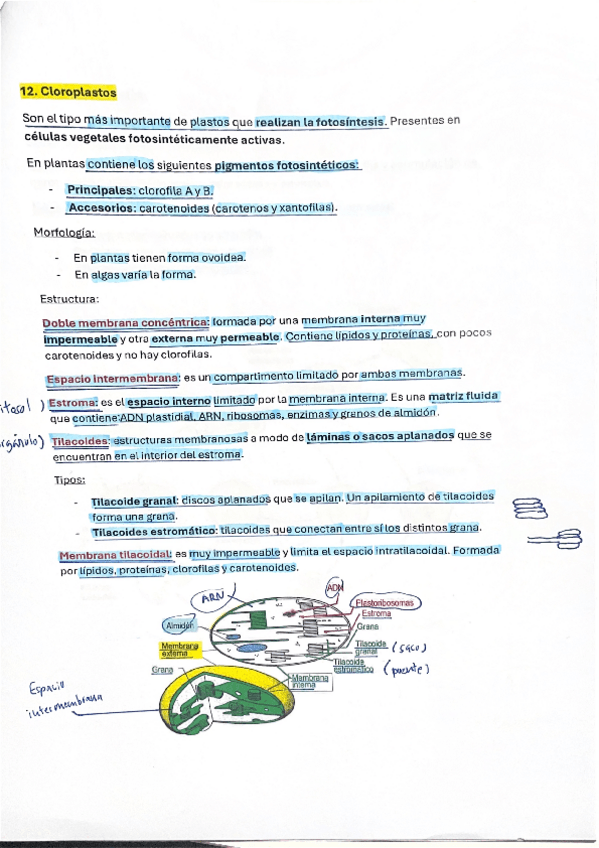 12. Cloroplastos
Son el tipo más importante de plastos que realizan la fotosíntesis. Presentes en
células vegetales fotosintéticamente activas.
En plantas contiene los siguientes pigmentos fotosintéticos:
- Principales: clorofila A y B.
- Accesorios: carotenoides (carotenos y xantofilas).
Morfología:
- En plantas tienen forma ovoidea.
- En algas varía la forma.
Estructura:
Doble membrana concéntrica: formada por una membrana interna muy
impermeable y otra externa muy permeable. Contiene lípidos y proteínas, con pocos
carotenoides y no hay clorofilas.
Espacio intermembrana: es un compartimento limitado por ambas membranas.
itosol ) Estroma: es el espacio interno limitado por la membrana interna. Es una matriz fluida
que contiene:ADN plastidial, ARN, ribosomas, enzimas y granos de almidón.
rgánulo) Tilacoides: estructuras membranosas a modo de láminas o sacos aplanados que se
encuentran en el interior del estroma.
Tipos:
- Tilacoide granal: discos aplanados que se apilan. Un apilamiento de tilacoides
forma una grana.
- Tilacoides estromático: tilacoides que conectan entre sí los distintos grana.
Membrana tilacoidal: es muy impermeable y limita el espacio intratilacoidal. Formada
por lípidos, proteínas, clorofilas y carotenoides.
ARN
ADN
Plastorribosomas
Estroma
Almidón
Grana
Membrana
externa
Tilacoide
granal (saco)
Grana
Tilacoide
estromático (puente)
Membrana
interna
Espacio
intermembrana